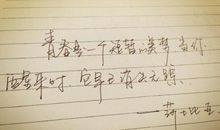 青春是一个短暂的美梦，当你
醒来时，它早已消失无踪
——莎士比亚